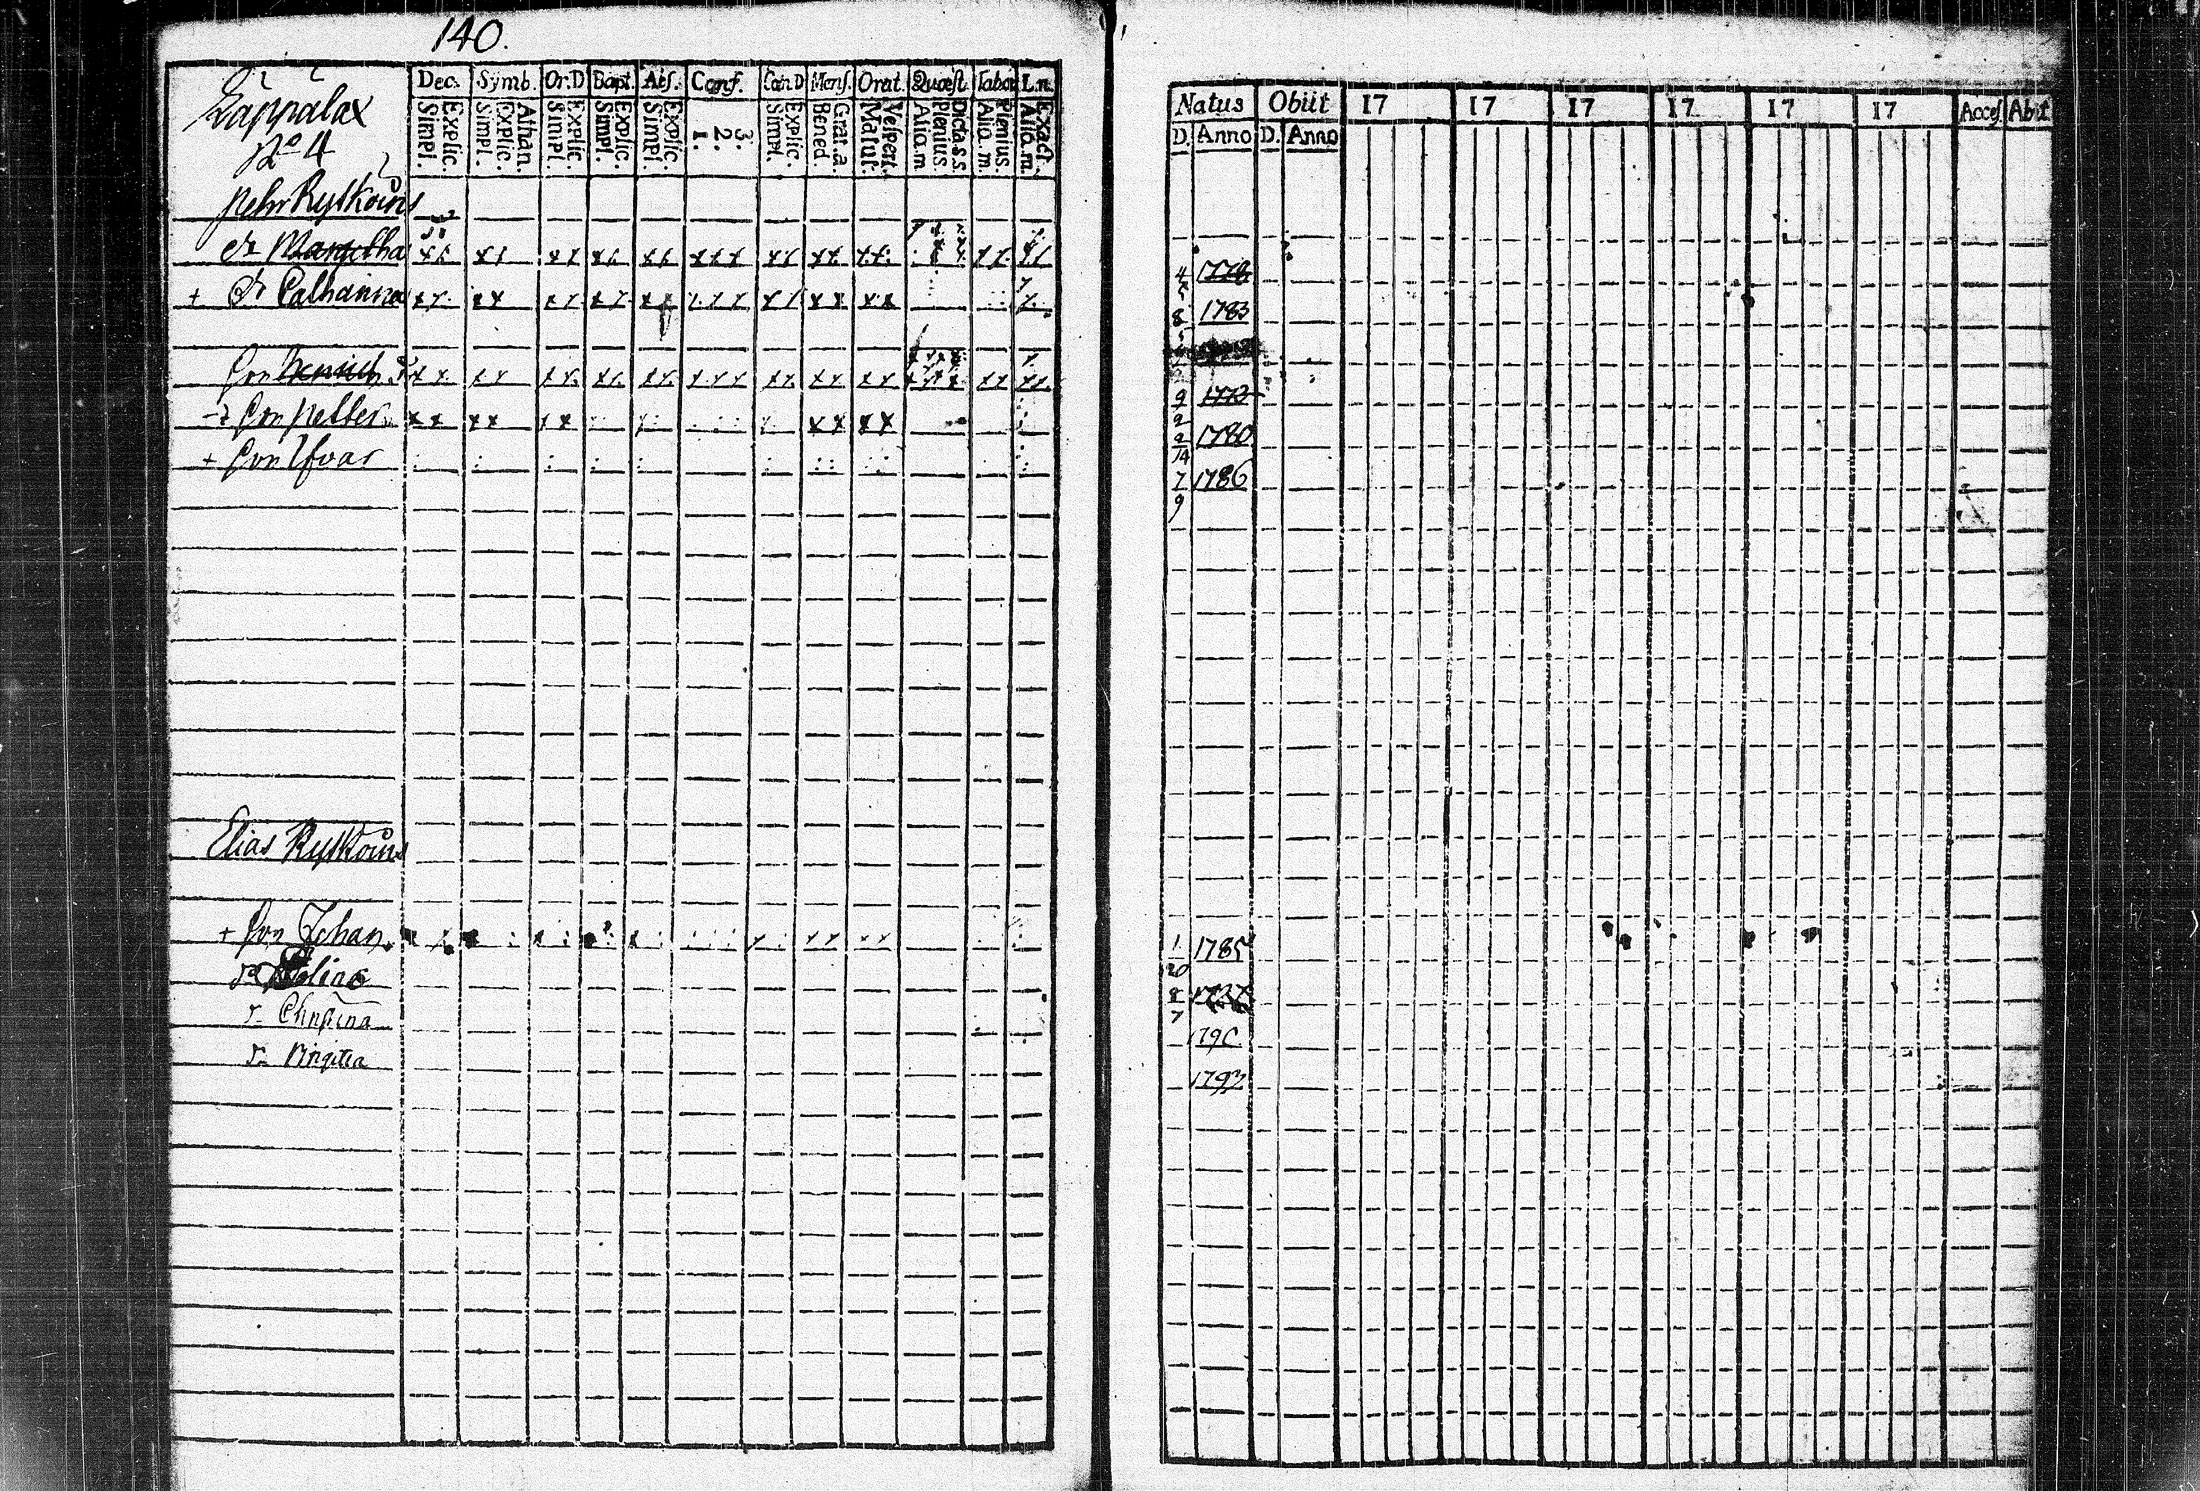 140.
Lappalax
No 4
Dec. Symb. Or.D Bapt. Abs. Conf. Cœn.D Mens. Orat. Quæst. Tabor L.n.
Explic. Simpl. Athan. Explic. Simpl. Explic. Simpl. Explic. Simpl. Explic. Simpl. 3. 2. 1. Explic. Simpl. Grat.a. Bened. Vespert. Matut. Dicta.s.s. Plenius. Alia.m Plenius. Alia.m. Exact. Alia.m.
Natus Obiit 17 17 17 17 17 17 Acces. Abit
D. Anno D. Anno
Pehr Rytköins
dr Margetha 4/5 1778
+ dr Catharina 8/5 1783
Son Henrich 9/2 1773
Son Petter 2/14 1780
+ Son Ifvar 7/9 1786
Elias Rytköins
+ Son Johan 1/20 1785
dr Elina 8/7
dr Christina 1790
dr Birgitta 1793